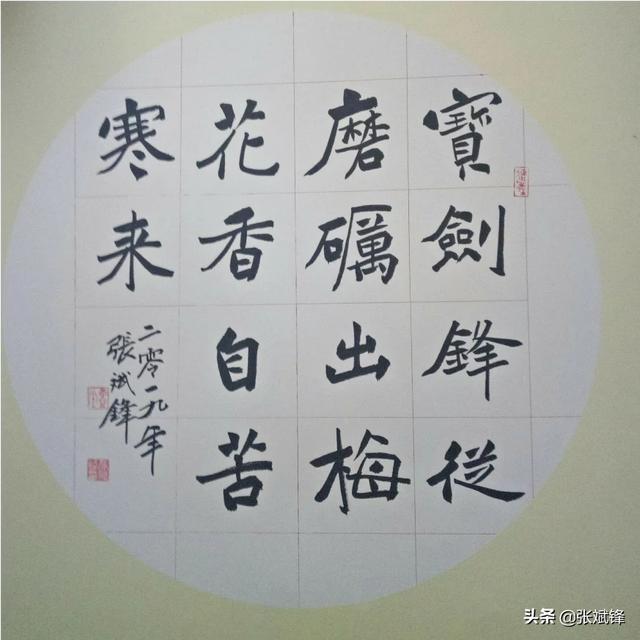 寶劍鋒從
磨礪出梅
花香自苦
寒来
二零一九年
張斌鋒
头条 @张斌锋